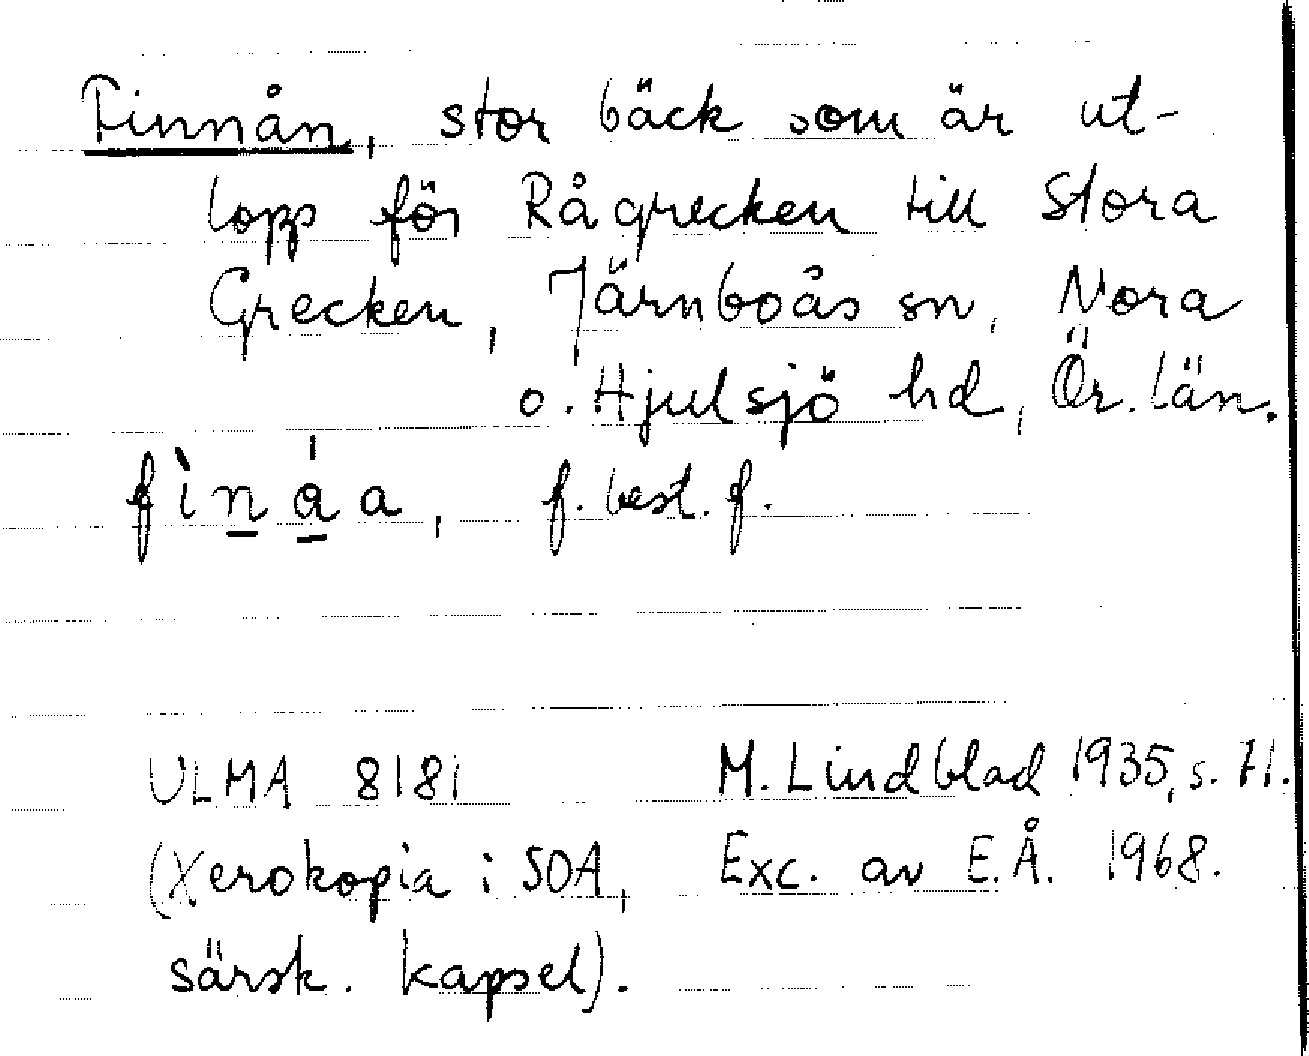 Finnån, stor bäck som är ut-
lopp för Rågrecken till Stora
Grecken, Järnboås sn, Nora
o. Hjulsjö hd, Ör. län.
fìnáa, f. best. f.
ULMA 8181 M. Lindblad 1935, s. 71.
(Xerokopia i SOA, Exc. av E.Å. 1968.
särsk. kapsel).